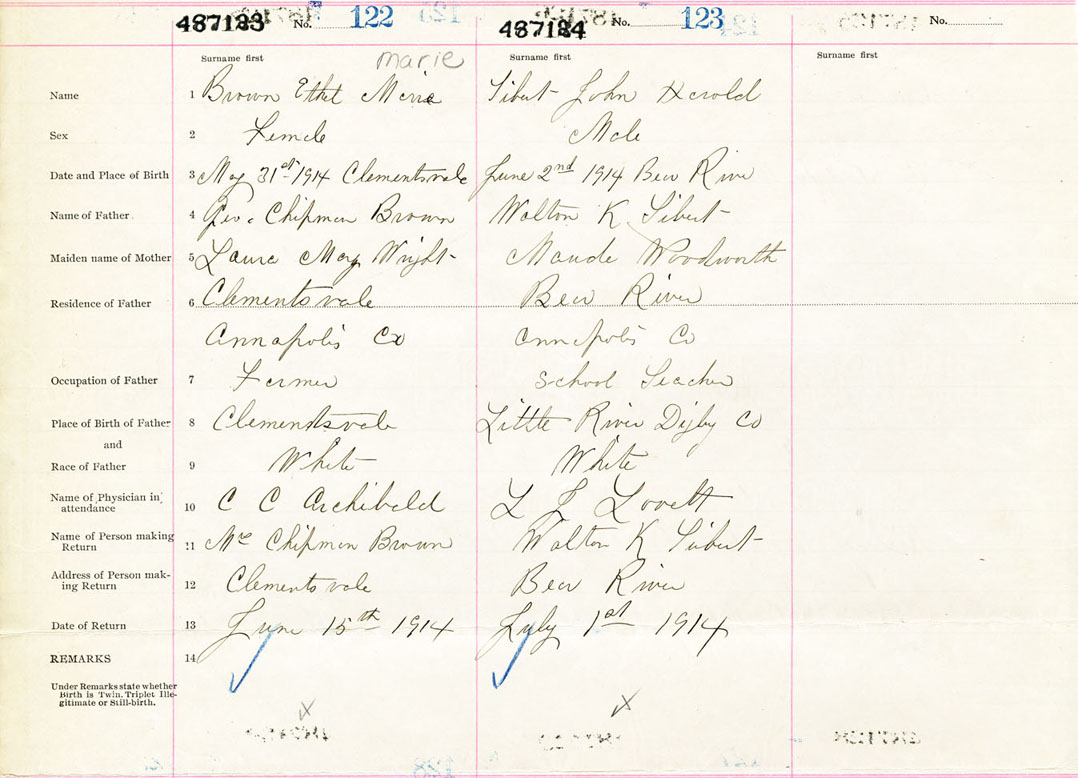 487123 No. 122 487124 No. 123 No.
Surname first marie Surname first Surname first
Name 1 Brown Ethel Marie Sibert John Harold
Sex 2 Female Male
Date and Place of Birth 3 May 31st 1914 Clementsvale June 2nd 1914 Bear River
Name of Father 4 Geo. Chipman Brown Walton K Sibert
Maiden name of Mother 5 Laura May Wright Maude Woodworth
Residence of Father 6 Clementsvale Bear River
Annapolis Co Annapolis Co
Occupation of Father 7 Farmer School Teacher
Place of Birth of Father 8 Clementsvale Little River Digby Co
and
Race of Father 9 White White
Name of Physician in
attendance 10 C C Archibald L J Lovett
Name of Person making
Return 11 Mrs Chipman Brown Walton K Sibert
Address of Person mak-
ing Return 12 Clementsvale Bear River
Date of Return 13 June 15th 1914 July 1st 1914
REMARKS 14
Under Remarks state whether
Birth is Twin, Triplet Ille-
gitimate or Still-birth.
x x